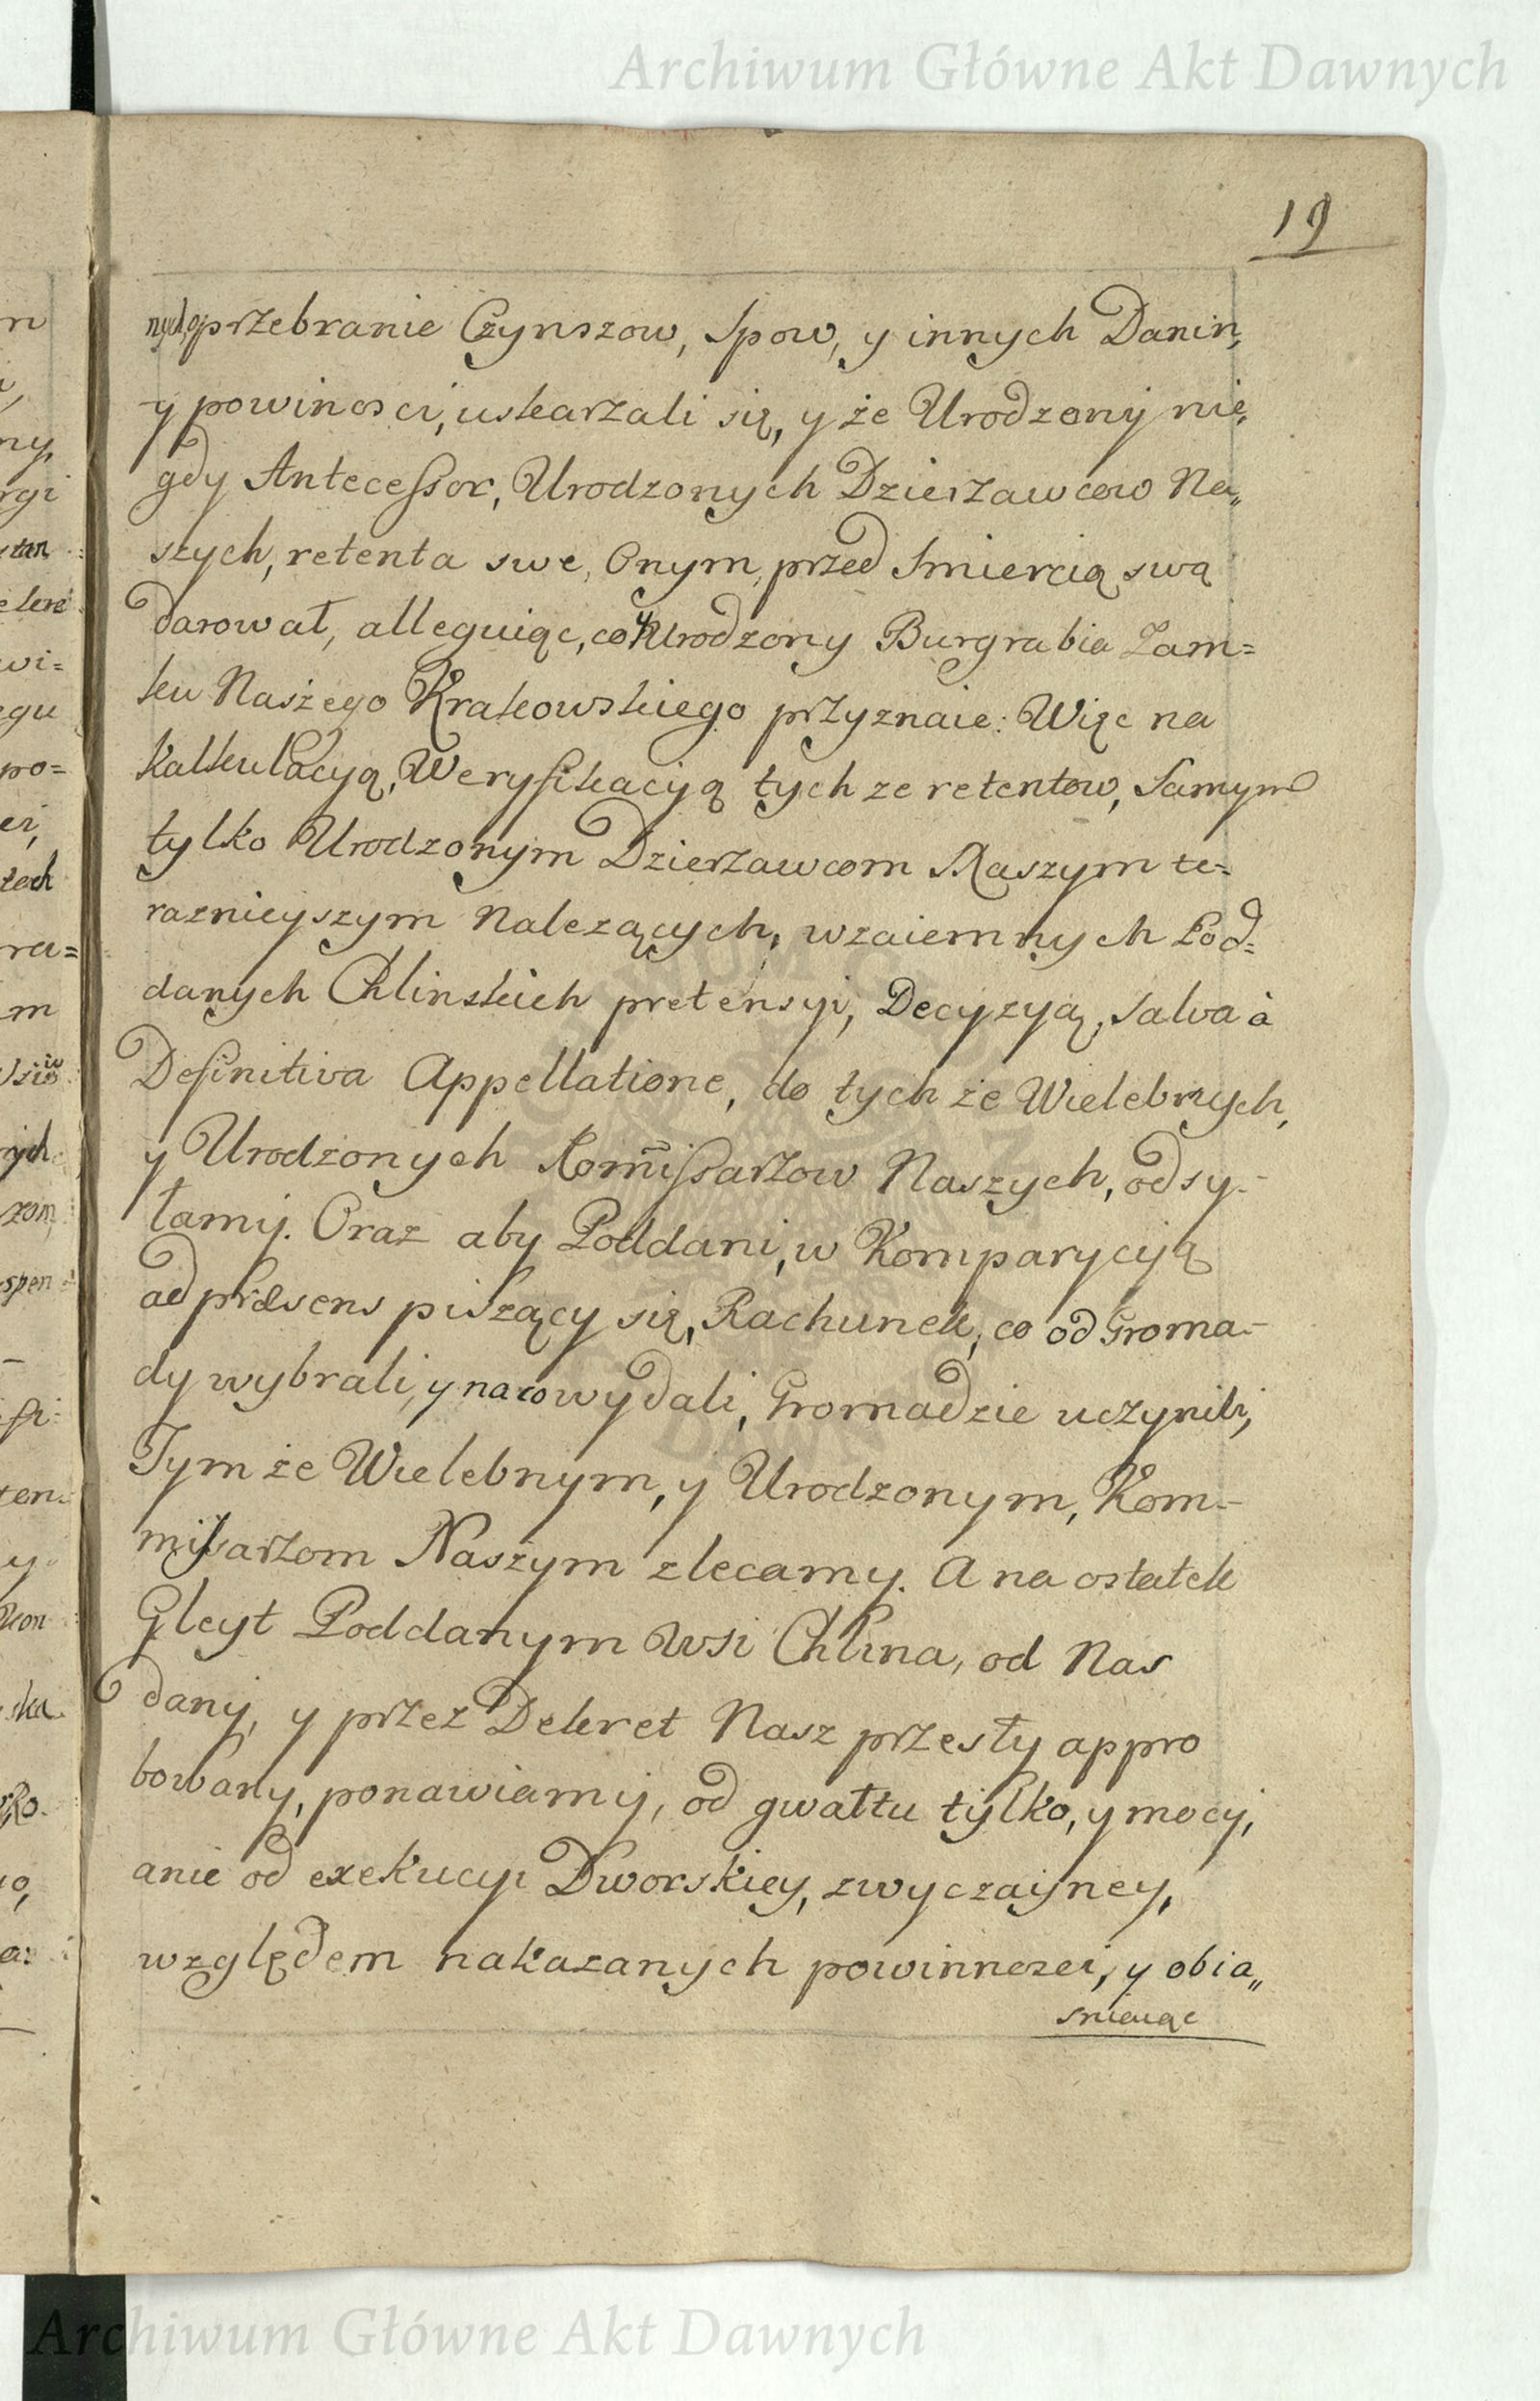 Archiwum Główne Akt Dawnych
19
nych, o przebranie Czynszow, Spow, y innych Danin,
y powinosci, uskarzali się, y że Urodzony nie,
gdy Antecessor, Urodzonych Dzierzawcow Na„
szych, retenta swe, Onym, przed Smiercią swą
darował, alleguiąc, co y Urodzony Burgrabia Zam=
ku Naszego Krakowskiego przyznaie: Więc na
Kalkulacyą, Weryfikacyą tych ze retentow, Samym
tylko Urodzonym Dzierzawcom Naszym te=
raznieyszym Nalezących, wzaiemnych Pod=
danych Chlinskich pretensyi, Decyzyą, salva à
Definitiva Appellatione, do tych że Wielebnych,
y Urodzonych Kom̃issarzow Naszych, odsy-
łamy. Oraz aby Poddani, w Komparycyą
ad præsens piszący się, Rachunek, co od Groma-
dy wybrali, y na co wydali, Gromadzie uczynili,
Tym że Wielebnym, y Urodzonym, Kom-
missarzom Naszym zlecamy. A na ostatek
Gleyt Poddanym Wsi Chlina, od Nas
dany, y przez Dekret Nasz przeszły appro
bowany, ponawiamy, od gwałtu tylko, y mocy,
anie od exekucyi Dworskiey, zwyczayney,
względem nakazanych powinnosci, y obia„
sniaiąc
Archiwum Główne Akt Dawnych